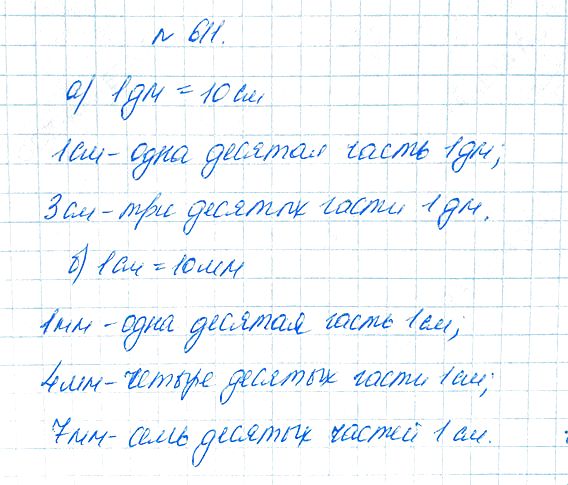 № 611.
а) 1дм = 10см
1см - одна десятая часть 1дм;
3см - три десятых части 1дм.
б) 1см = 10мм
1мм - одна десятая часть 1см;
4мм - четыре десятых части 1см;
7мм - семь десятых частей 1см.